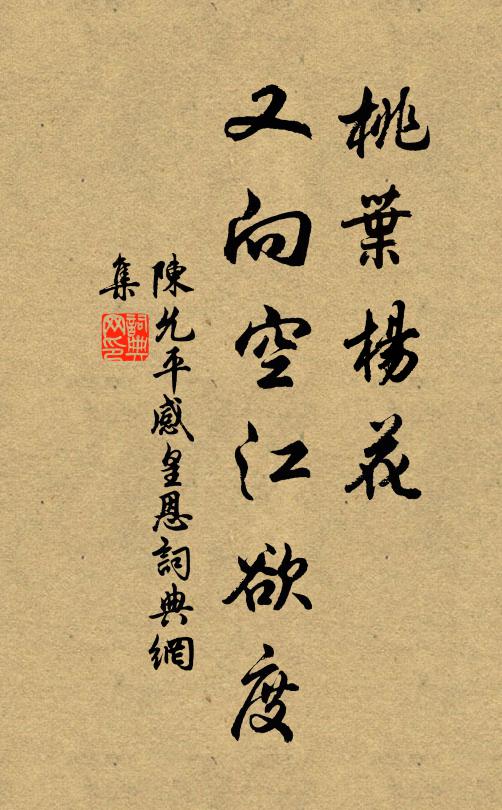 桃葉楊花
又向空江欲度
陳允平感皇恩詞典網
集
詞典
网印